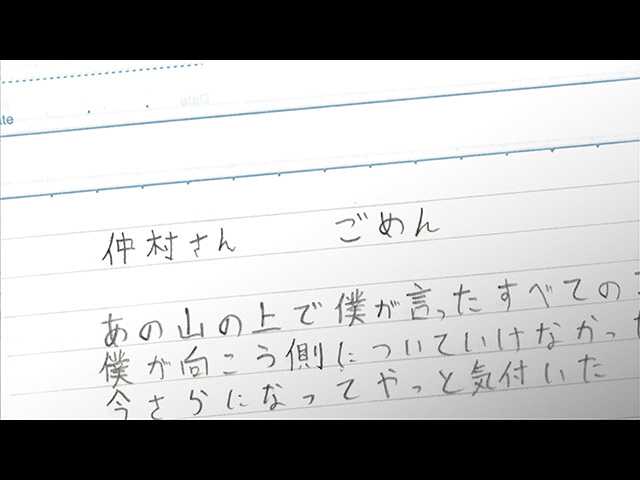 ate
Date
仲村さん　ごめん
あの山の上で僕が言ったすべての
僕が向こう側についていけなかった
今さらになってやっと気付いた